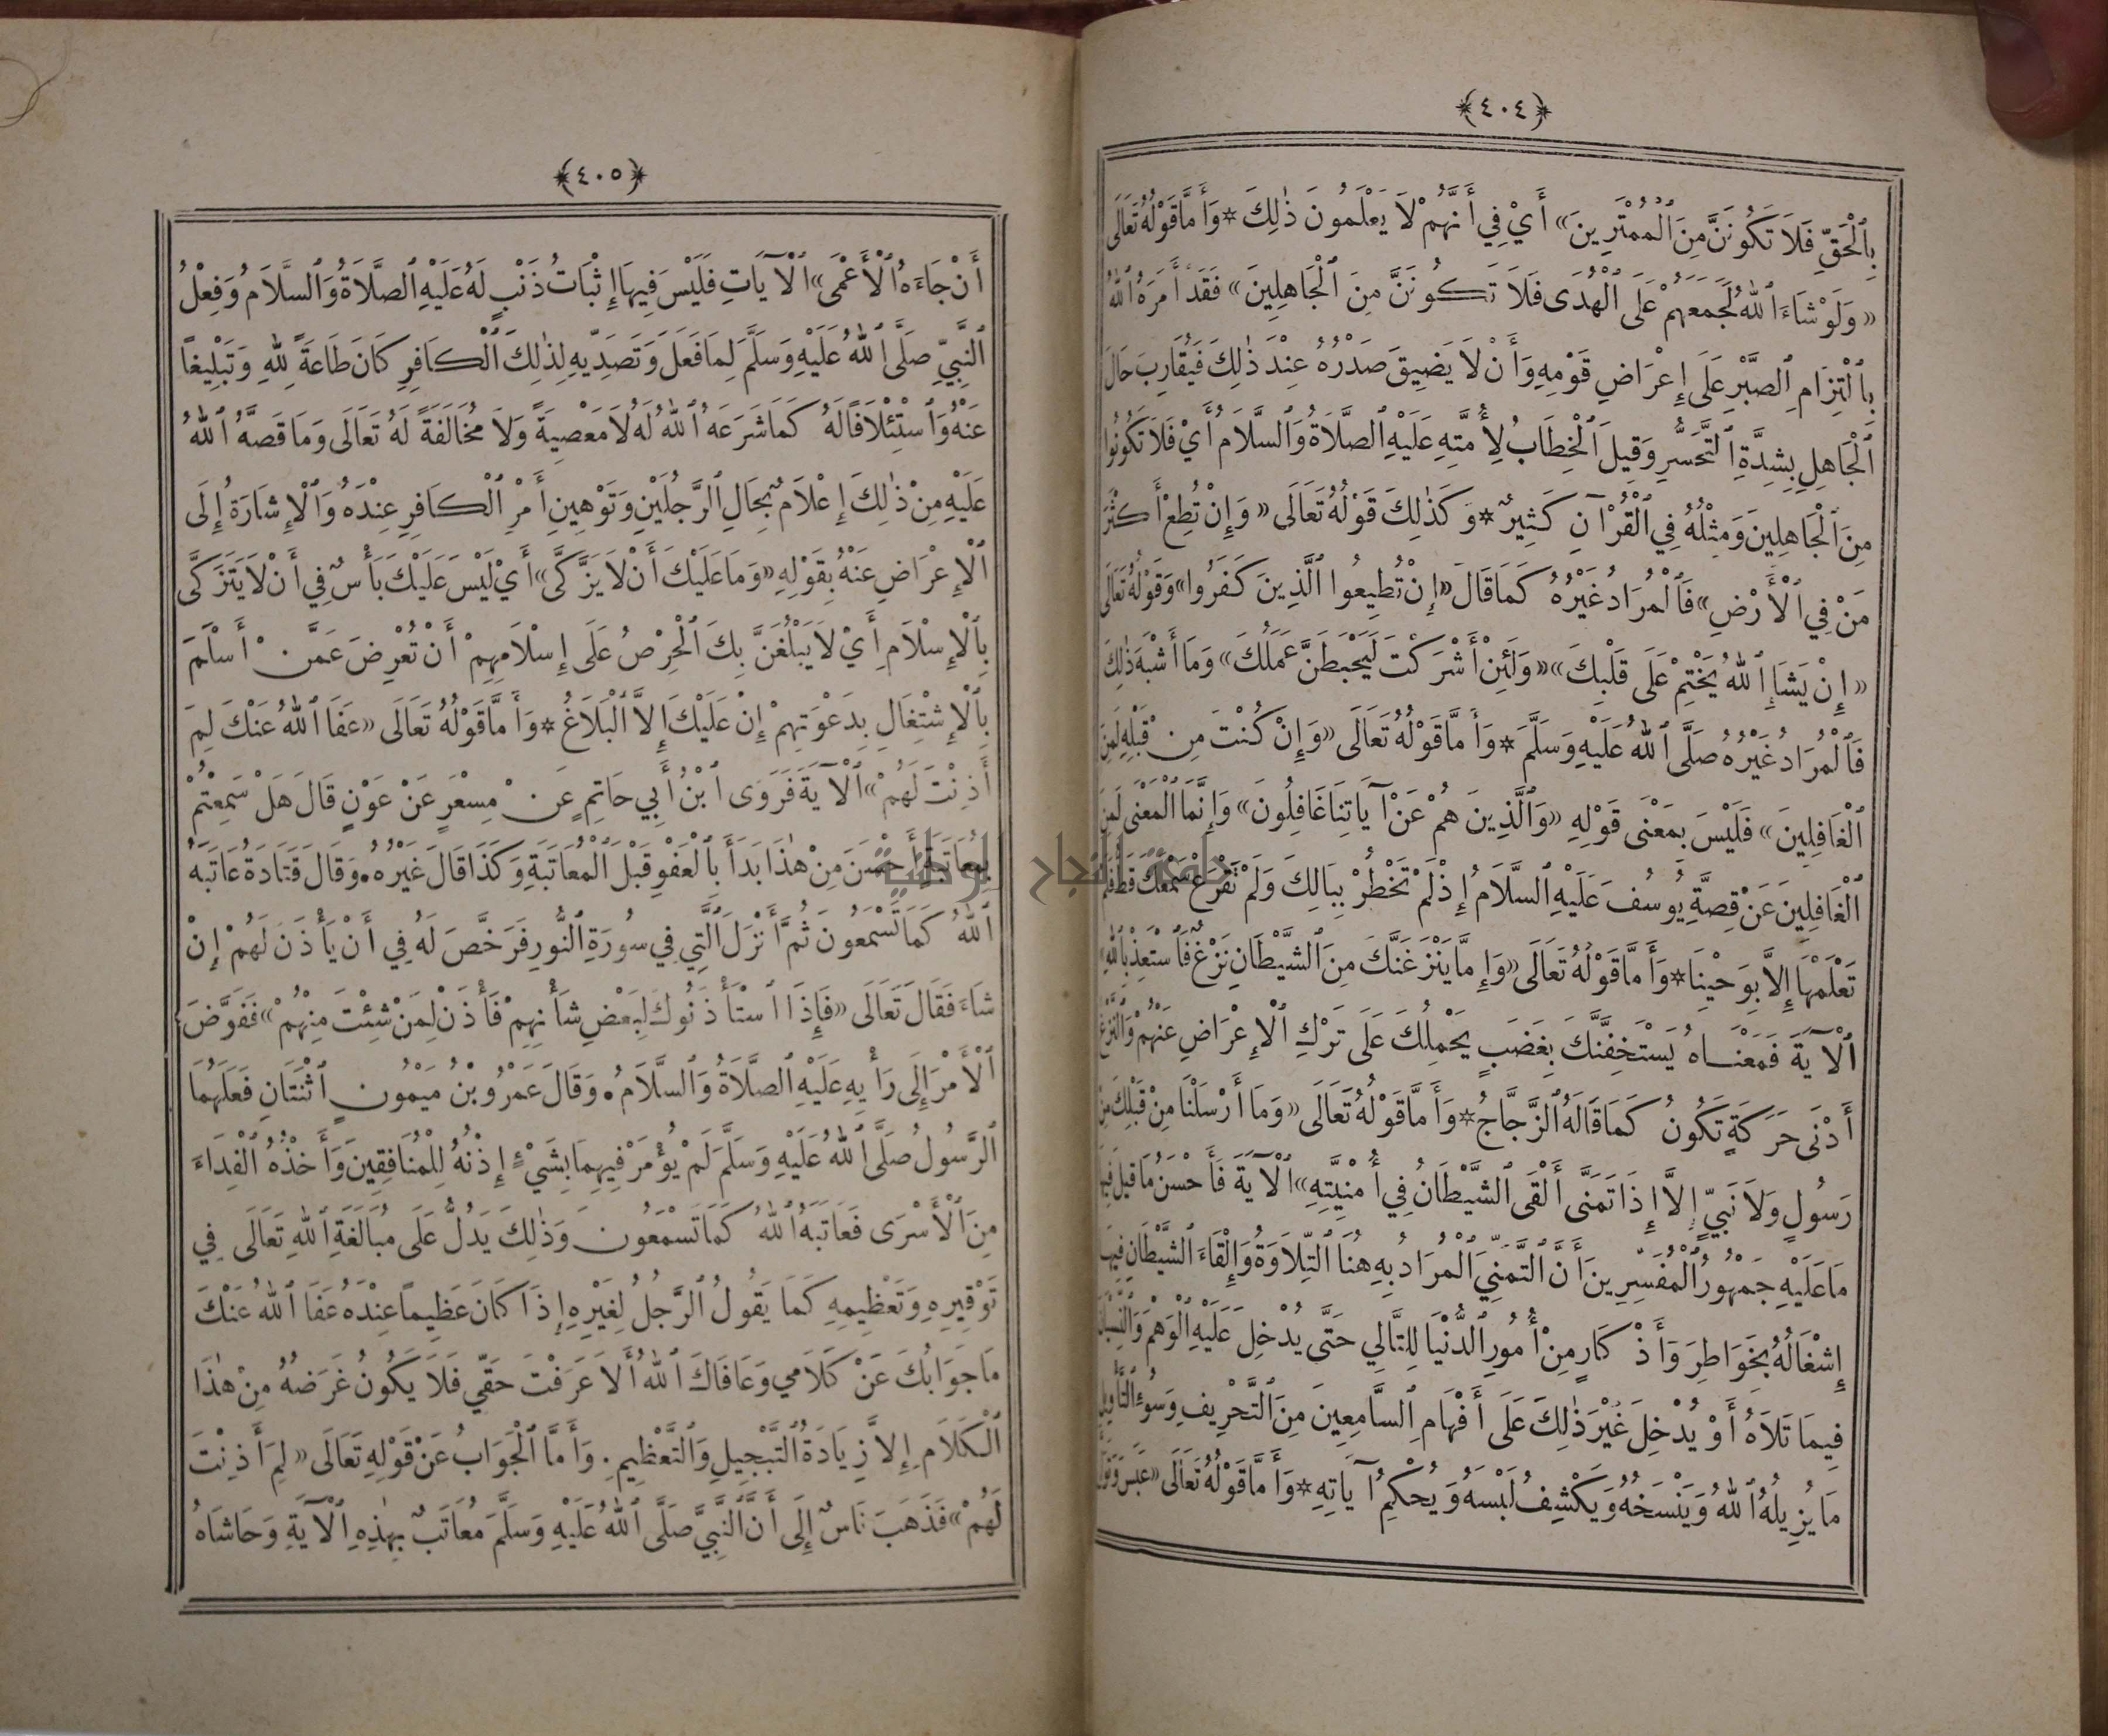 ﴿٤٠٤﴾
بِٱلْحَقِّ فَلاَ تَكُونَنَّ مِنَ ٱلْمُمْتَرِينَ» أَيْ فِي أَنَّهُمْ لاَ يَعْلَمُونَ ذٰلِكَ * وَأَمَّا قَوْلُهُ تَعَالَى
«وَلَوْ شَاءَ ٱللهُ لَجَمَعَهُمْ عَلَى ٱلْهُدَى فَلاَ تَكُونَنَّ مِنَ ٱلْجَاهِلِينَ» فَقَدْ أَمَرَهُ ٱللهُ
بِٱلْتِزَامِ ٱلصَّبْرِ عَلَى إِعْرَاضِ قَوْمِهِ وَأَنْ لاَ يَضِيقَ صَدْرُهُ عِنْدَ ذٰلِكَ فَيُقَارِبَ حَالَ
ٱلْجَاهِلِ بِشِدَّةِ ٱلتَّحَسُّرِ وَقِيلَ ٱلْخِطَابُ لِأُمَّتِهِ عَلَيْهِ ٱلصَّلاَةُ وَٱلسَّلاَمُ أَيْ فَلاَ تَكُونُوا
مِنَ ٱلْجَاهِلِينَ وَمِثْلُهُ فِي ٱلْقُرْآنِ كَثِيرٌ * وَكَذٰلِكَ قَوْلُهُ تَعَالَى «وَإِنْ تُطِعْ أَكْثَرَ
مَنْ فِي ٱلْأَرْضِ» فَٱلْمُرَادُ غَيْرُهُ كَمَا قَالَ «إِنْ تُطِيعُوا ٱلَّذِينَ كَفَرُوا» وَقَوْلُهُ تَعَالَى
«إِنْ يَشَإِ ٱللهُ يَخْتِمْ عَلَى قَلْبِكَ» «وَلَئِنْ أَشْرَكْتَ لَيَحْبَطَنَّ عَمَلُكَ» وَمَا أَشْبَهَ ذٰلِكَ
فَٱلْمُرَادُ غَيْرُهُ صَلَّى ٱللهُ عَلَيْهِ وَسَلَّمَ * وَأَمَّا قَوْلُهُ تَعَالَى «وَإِنْ كُنْتَ مِنْ قَبْلِهِ لَمِنَ
ٱلْغَافِلِينَ» فَلَيْسَ بِمَعْنَى قَوْلِهِ «وَٱلَّذِينَ هُمْ عَنْ آيَاتِنَا غَافِلُونَ» وَإِنَّمَا ٱلْمَعْنَى لَمِنَ
ٱلْغَافِلِينَ عَنْ قِصَّةِ يُوسُفَ عَلَيْهِ ٱلسَّلاَمُ إِذْ لَمْ تَخْطُرْ بِبَالِكَ وَلَمْ تَقْرَعْ سَمْعَكَ قَطُّ فَلَمْ
تَعْلَمْهَا إِلاَّ بِوَحْيِنَا * وَأَمَّا قَوْلُهُ تَعَالَى «وَإِمَّا يَنْزَغَنَّكَ مِنَ ٱلشَّيْطَانِ نَزْغٌ فَٱسْتَعِذْ بِٱللهِ»
ٱلْآيَةَ فَمَعْنَاهُ يَسْتَخِفَّنَّكَ بِغَضَبٍ يَحْمِلُكَ عَلَى تَرْكِ ٱلْإِعْرَاضِ عَنْهُمْ وَٱلنَّزْغُ
أَدْنَى حَرَكَةٍ تَكُونُ كَمَا قَالَهُ ٱلزَّجَّاجُ * وَأَمَّا قَوْلُهُ تَعَالَى «وَمَا أَرْسَلْنَا مِنْ قَبْلِكَ مِنْ
رَسُولٍ وَلاَ نَبِيٍّ إِلاَّ إِذَا تَمَنَّى أَلْقَى ٱلشَّيْطَانُ فِي أُمْنِيَّتِهِ» ٱلْآيَةَ فَأَحْسَنُ مَا قِيلَ فِيهَا
مَا عَلَيْهِ جُمْهُورُ ٱلْمُفَسِّرِينَ أَنَّ ٱلتَّمَنِّيَ ٱلْمُرَادُ بِهِ هُنَا ٱلتِّلاَوَةُ وَإِلْقَاءَ ٱلشَّيْطَانِ فِيهَا
إِشْغَالُهُ بِخَوَاطِرَ وَأَذْكَارٍ مِنْ أُمُورِ ٱلدُّنْيَا لِلتَّالِي حَتَّى يُدْخِلَ عَلَيْهِ ٱلْوَهْمَ وَٱلنِّسْيَانَ
فِيمَا تَلاَهُ أَوْ يُدْخِلَ غَيْرَ ذٰلِكَ عَلَى أَفْهَامِ ٱلسَّامِعِينَ مِنَ ٱلتَّحْرِيفِ وَسُوءِ ٱلتَّأْوِيلِ
مَا يُزِيلُهُ ٱللهُ وَيَنْسَخُهُ وَيَكْشِفُ لَبْسَهُ وَيُحْكِمُ آيَاتِهِ * وَأَمَّا قَوْلُهُ تَعَالَى «عَبَسَ وَتَوَلَّى
﴿٤٠٥﴾
أَنْ جَاءَهُ ٱلْأَعْمَى» ٱلْآيَاتِ فَلَيْسَ فِيهَا إِثْبَاتُ ذَنْبٍ لَهُ عَلَيْهِ ٱلصَّلاَةُ وَٱلسَّلاَمُ وَفِعْلُ
ٱلنَّبِيِّ صَلَّى ٱللهُ عَلَيْهِ وَسَلَّمَ لِمَا فَعَلَ وَتَصَدِّيهِ لِذٰلِكَ ٱلْكَافِرِ كَانَ طَاعَةً لِلهِ وَتَبْلِيغاً
عَنْهُ وَٱسْتِئْلاَفًا لَهُ كَمَا شَرَعَهُ ٱللهُ لَهُ لاَ مَعْصِيَةً وَلاَ مُخَالَفَةً لَهُ تَعَالَى وَمَا قَصَّهُ ٱللهُ
عَلَيْهِ مِنْ ذٰلِكَ إِعْلاَمٌ بِحَالِ ٱلرَّجُلَيْنِ وَتَوْهِينِ أَمْرِ ٱلْكَافِرِ عِنْدَهُ وَٱلْإِشَارَةُ إِلَى
ٱلْإِعْرَاضِ عَنْهُ بِقَوْلِهِ «وَمَا عَلَيْكَ أَنْ لاَ يَزَّكَّى» أَيْ لَيْسَ عَلَيْكَ بَأْسٌ فِي أَنْ لاَ يَتَزَكَّى
بِٱلْإِسْلاَمِ أَيْ لاَ يَبْلُغَنَّ بِكَ ٱلْحِرْصُ عَلَى إِسْلاَمِهِمْ أَنْ تُعْرِضَ عَمَّنْ أَسْلَمَ
بِٱلْإِشْتِغَالِ بِدَعْوَتِهِمْ إِنْ عَلَيْكَ إِلاَّ ٱلْبَلاَغُ * وَأَمَّا قَوْلُهُ تَعَالَى «عَفَا ٱللهُ عَنْكَ لِمَ
أَذِنْتَ لَهُمْ» ٱلْآيَةَ فَرَوَى ٱبْنُ أَبِي حَاتِمٍ عَنْ مِسْعَرٍ عَنْ عَوْنٍ قَالَ هَلْ سَمِعْتُمْ
بِمُعَاتَبَةٍ أَحْسَنَ مِنْ هٰذَا بَدَأَ بِٱلْعَفْوِ قَبْلَ ٱلْمُعَاتَبَةِ وَكَذَا قَالَ غَيْرُهُ. وَقَالَ قَتَادَةُ عَاتَبَهُ
ٱللهُ كَمَا تَسْمَعُونَ ثُمَّ أَنْزَلَ ٱلَّتِي فِي سُورَةِ ٱلنُّورِ فَرَخَّصَ لَهُ فِي أَنْ يَأْذَنَ لَهُمْ إِنْ
شَاءَ فَقَالَ تَعَالَى «فَإِذَا ٱسْتَأْذَنُوكَ لِبَعْضِ شَأْنِهِمْ فَأْذَنْ لِمَنْ شِئْتَ مِنْهُمْ» فَفَوَّضَ
ٱلْأَمْرَ إِلَى رَأْيِهِ عَلَيْهِ ٱلصَّلاَةُ وَٱلسَّلاَمُ. وَقَالَ عَمْرُو بْنُ مَيْمُونٍ ٱثْنَتَانِ فَعَلَهُمَا
ٱلرَّسُولُ صَلَّى ٱللهُ عَلَيْهِ وَسَلَّمَ لَمْ يُؤْمَرْ فِيهِمَا بِشَيْءٍ إِذْنُهُ لِلْمُنَافِقِينَ وَأَخْذُهُ ٱلْفِدَاءَ
مِنَ ٱلْأَسْرَى فَعَاتَبَهُ ٱللهُ كَمَا تَسْمَعُونَ وَذٰلِكَ يَدُلُّ عَلَى مُبَالَغَةِ ٱللهِ تَعَالَى فِي
تَوْقِيرِهِ وَتَعْظِيمِهِ كَمَا يَقُولُ ٱلرَّجُلُ لِغَيْرِهِ إِذَا كَانَ عَظِيماً عِنْدَهُ عَفَا ٱللهُ عَنْكَ
مَا جَوَابُكَ عَنْ كَلاَمِي وَعَافَاكَ ٱللهُ أَلاَ عَرَفْتَ حَقِّي فَلاَ يَكُونُ غَرَضُهُ مِنْ هٰذَا
ٱلْكَلاَمِ إِلاَّ زِيَادَةُ ٱلتَّبْجِيلِ وَٱلتَّعْظِيمِ. وَأَمَّا ٱلْجَوَابُ عَنْ قَوْلِهِ تَعَالَى «لِمَ أَذِنْتَ
لَهُمْ» فَذَهَبَ نَاسٌ إِلَى أَنَّ ٱلنَّبِيَّ صَلَّى ٱللهُ عَلَيْهِ وَسَلَّمَ مُعَاتَبٌ بِهٰذِهِ ٱلْآيَةِ وَحَاشَاهُ
جامعة النجاح الوطنية